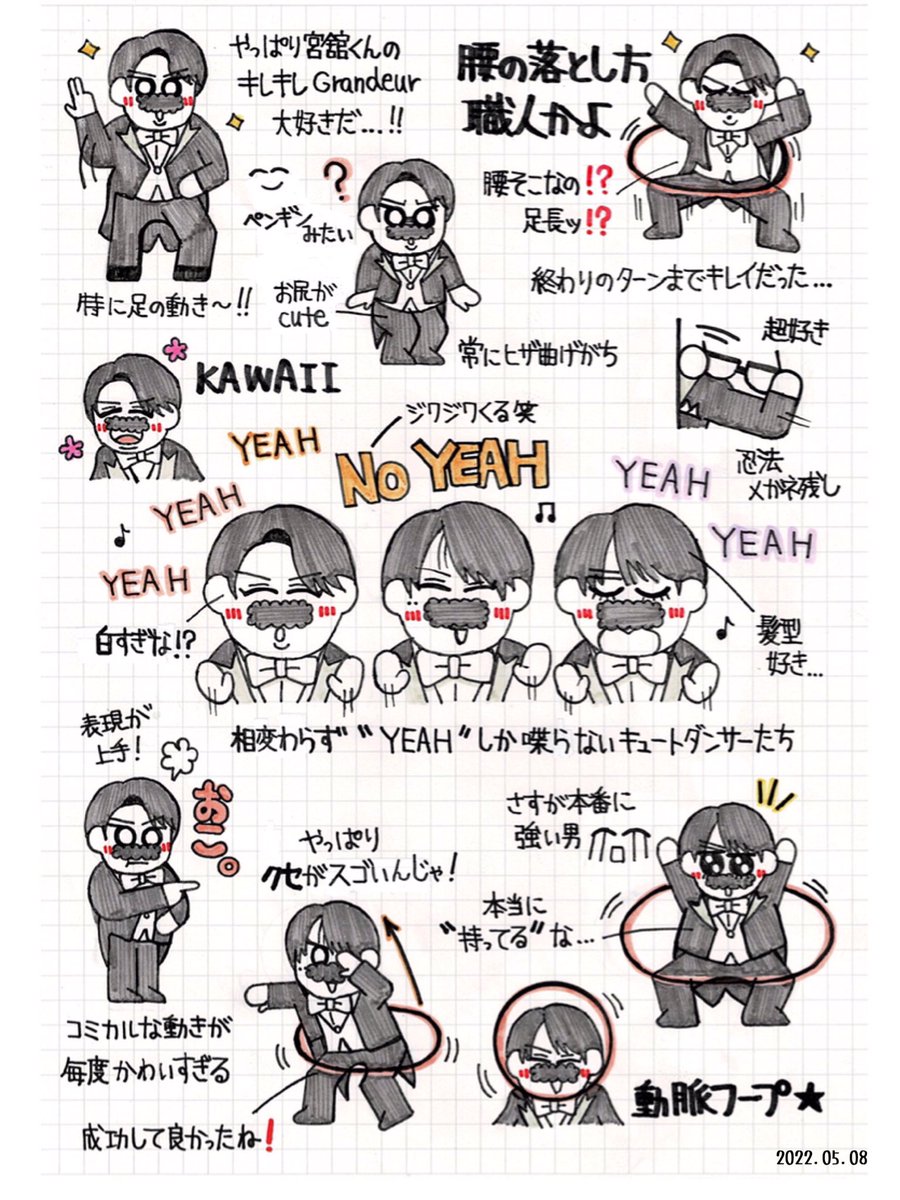 やっぱり宮舘くんの
キレキレ Grandeur
大好きだ...!!
腰の落とし方
職人かよ
腰そこなの!?
足長ッ!?
終わりのターンまでキレイだった...
?
ペンギン
みたい
特に足の動き〜!!
お尻が
cute
常にヒザ曲げがち
超好き
忍法
メガネ残し
KAWAII
ジワジワくる笑
YEAH
NO YEAH
YEAH
YEAH
YEAH
YEAH
白すぎな!?
髪型
好き...
相変わらず"YEAH"しか喋らないキュートダンサーたち
表現が
上手!
おこ。
さすが本番に
強い男
やっぱり
クセがスゴいんじゃ!
本当に
"持ってる"な...
コミカルな動きが
毎度かわいすぎる
成功して良かったね!
動脈フープ★
2022.05.08